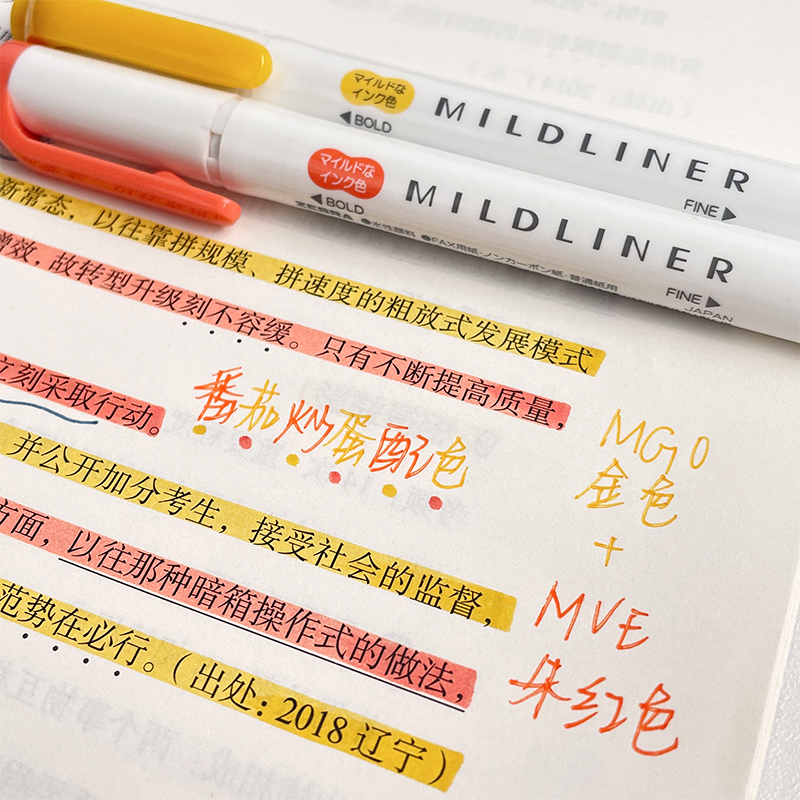 マイルドな
インク色
◀BOLD
MILDLINER
FINE▶
マイルドな
インク色
◀BOLD
MILDLINER
ZEBRA ●水性顔料 ●FAX用紙・ノンカーボン紙・普通紙用
FINE▶
JAPAN
新常态，以往靠拼规模、拼速度的粗放式发展模式
增效，故转型升级刻不容缓。只有不断提高质量，
立刻采取行动。
番茄炒蛋配色
MG0
金色
+
MVE
朱红色
并公开加分考生，接受社会的监督，
方面，以往那种暗箱操作式的做法，
范势在必行。（出处：2018辽宁）